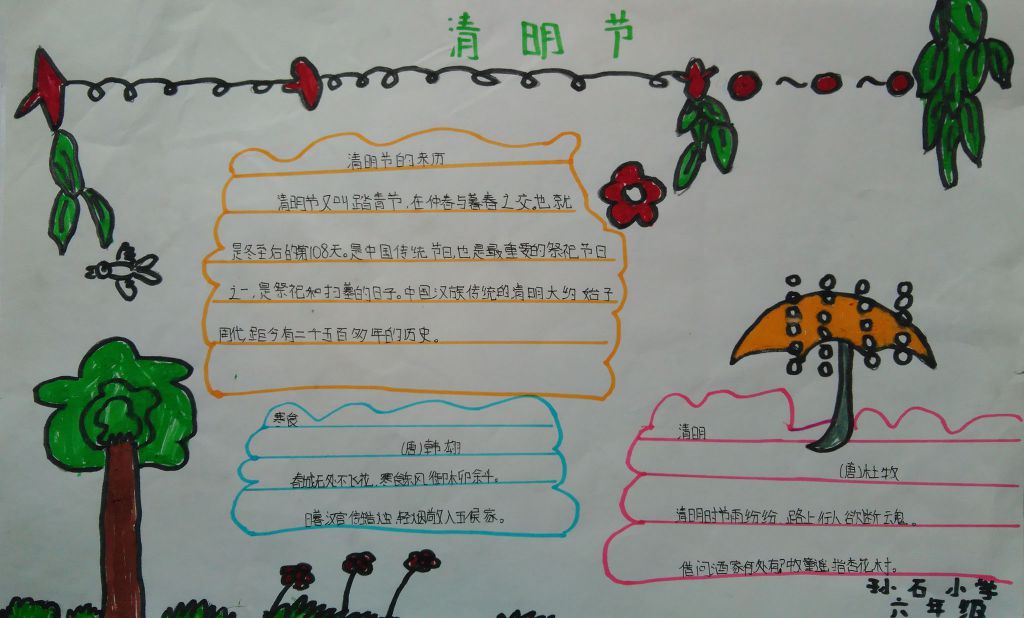 清明节
清明节的来历
清明节又叫踏青节,在仲春与暮春之交。也就
是冬至后的第108天。是中国传统节日,也是最重要的祭祀节日
之一,是祭祀和扫墓的日子。中国汉族传统的清明大约始于
周代,距今有二千五百多年的历史。
寒食
(唐)韩翃
春城无处不飞花,寒食东风御柳斜。
日暮汉宫传蜡烛,轻烟散入五侯家。
清明
(唐)杜牧
清明时节雨纷纷,路上行人欲断魂。
借问酒家何处有?牧童遥指杏花村。
孙石小学
六年级